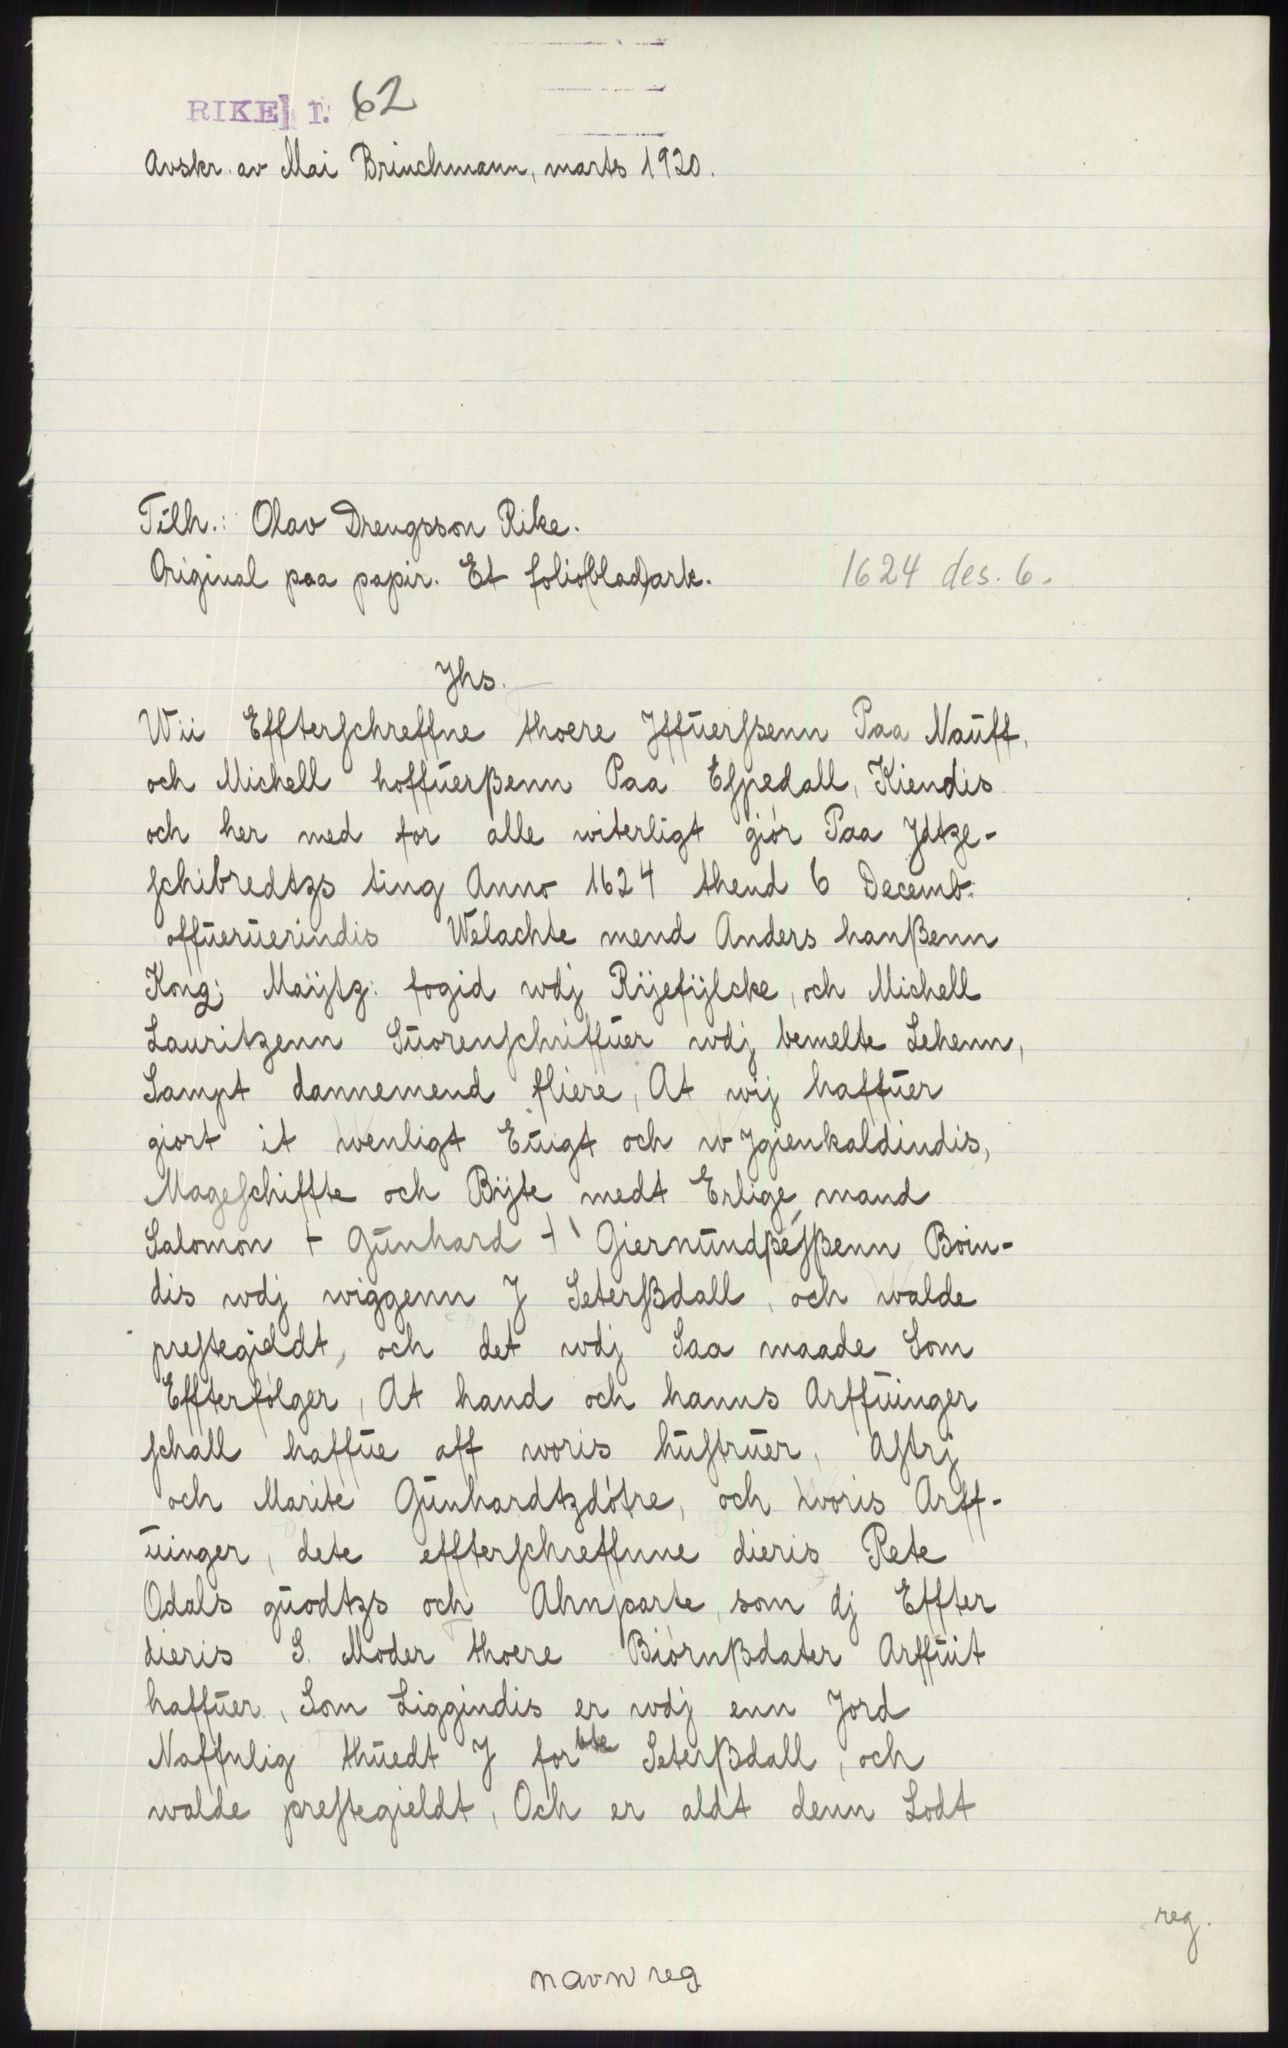 RIKE] 1. 62
Avskr. av Mai Brinchmann, marts 1920.
Tilh.: Olav Drengsson Rike.
Original paa papir. Et folio(blad)ark.
1624 des. 6.
Jhs.
Wii Effterſchreffne thoere Jffŭerſsenn Paa Naŭff,
och Michell hoffŭerßenn Paa Eſpedall, Kiendis
och her med for alle witerligt giór Paa Jdtze-
ſchibredtzs ting Anno 1624 thend 6 Decemb:
offŭerŭerindis Welachte mend Anders hanßenn
Kong: Maÿtz: fogid wdj Rÿefÿlcke, och Michell
Lauritzenn Sŭorenſchriffŭer wdj bemelte Lehenn,
Sampt dannemend fliere, At wij haffŭer
giort it wenligt Eŭigt och w Jgienkaldindis,
Mageſchiffte och Bÿte medt Erlige mand
Salomon + Gŭnhard + Giermŭndßeſßenn Boin-
dis wdj wiggenn J Seterßdall, och walde
preſtegieldt, och det wdj Saa maade Som
Effterfólger, At hand och hanns Arffŭinger
ſchall haffŭe aff woris hŭſtrŭer, Aſtrj
och Marite Gŭnhardtzdótre, och woris Arff-
ŭinger, dete effterſchreffnne dieris Rete
Odals gŭodtzs och Ahnparte, som dj Effter
dieris S. Moder thoere Biórnßdater Arffŭit
haffŭer, Som Liggindis er wdj enn Jord
Naffnlig thŭedt J forbte Seterßdall, och
walde preſtegieldt, Och er aldt denn Lodt
reg.
navn reg